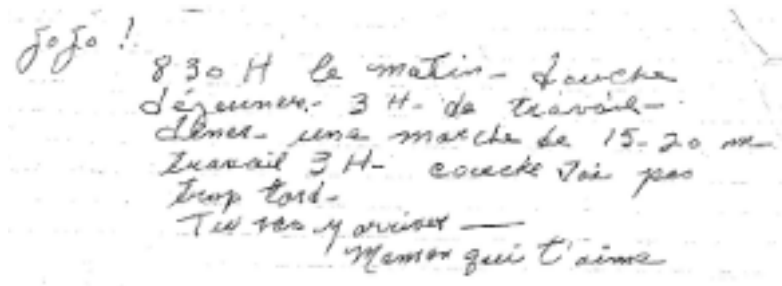 jojo !
8 30 H le matin - douche
déjeuner - 3 H - de travail -
dîner - une marche de 15 - 20 mn
travail 3 H - couche toi pas
trop tard -
Tu vas y arriver —
Maman qui t'aime